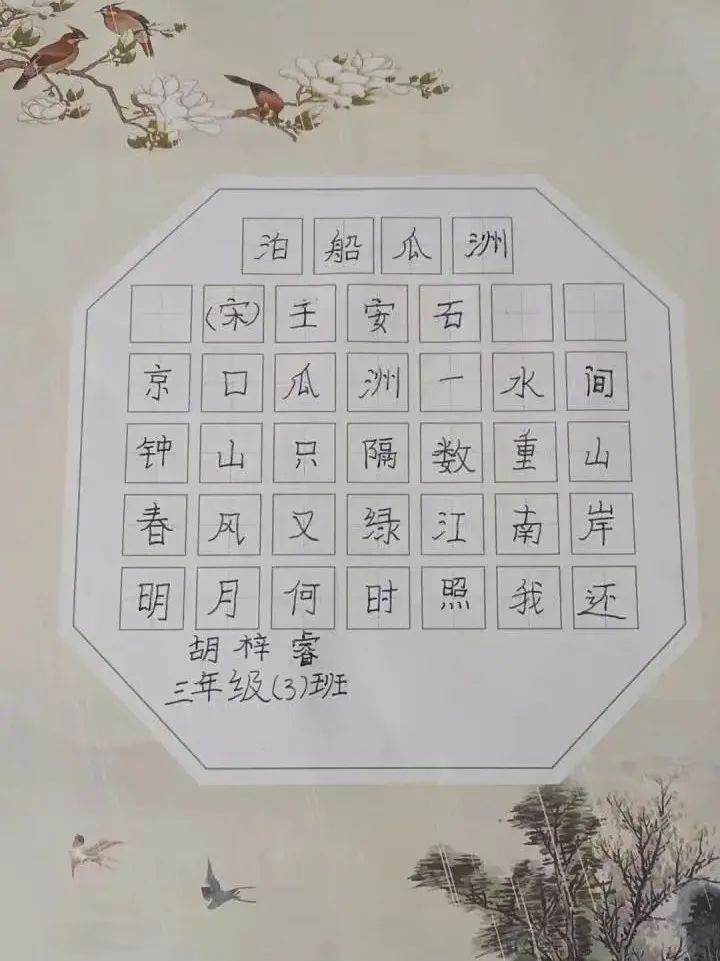 泊船瓜洲
(宋)王安石
京口瓜洲一水间
钟山只隔数重山
春风又绿江南岸
明月何时照我还
胡梓睿
三年级(3)班